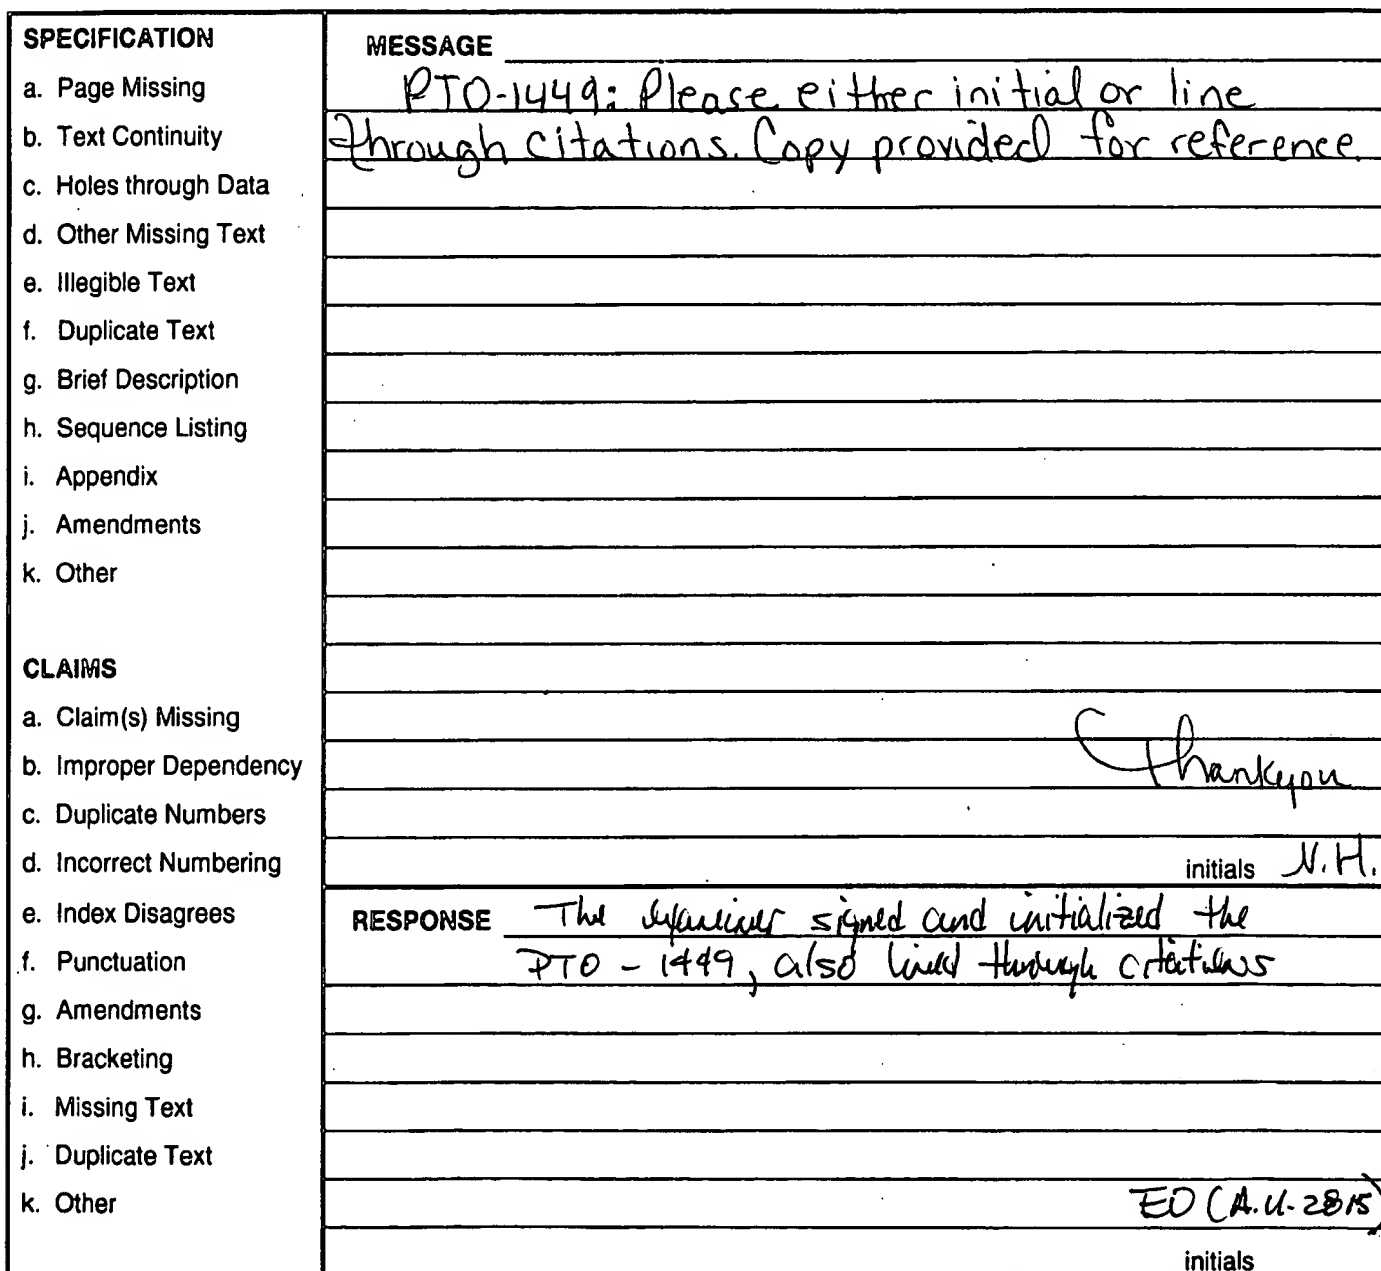 SPECIFICATION
a. Page Missing
b. Text Continuity
c. Holes through Data
d. Other Missing Text
e. Illegible Text
f. Duplicate Text
g. Brief Description
h. Sequence Listing
i. Appendix
j. Amendments
k. Other
CLAIMS
a. Claim(s) Missing
b. Improper Dependency
c. Duplicate Numbers
d. Incorrect Numbering
e. Index Disagrees
f. Punctuation
g. Amendments
h. Bracketing
i. Missing Text
j. Duplicate Text
k. Other
MESSAGE
PTO-1449: Please either initial or line
through citations. Copy provided for reference.
Thankyou
initials N.H.
RESPONSE The examiner signed and initialized the
PTO - 1449, also lined through citations
EO (A.U-2815)
initials